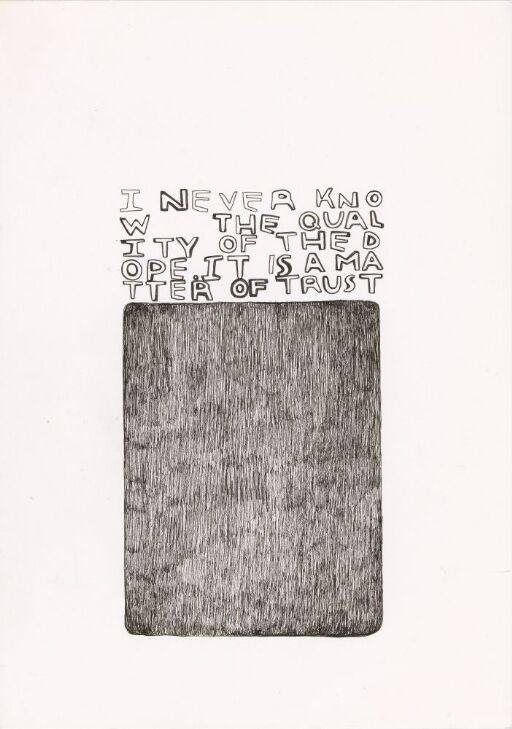 I NEVER KNO
W THE QUAL
ITY OF THE D
OPE. IT IS A MA
TTER OF TRUST